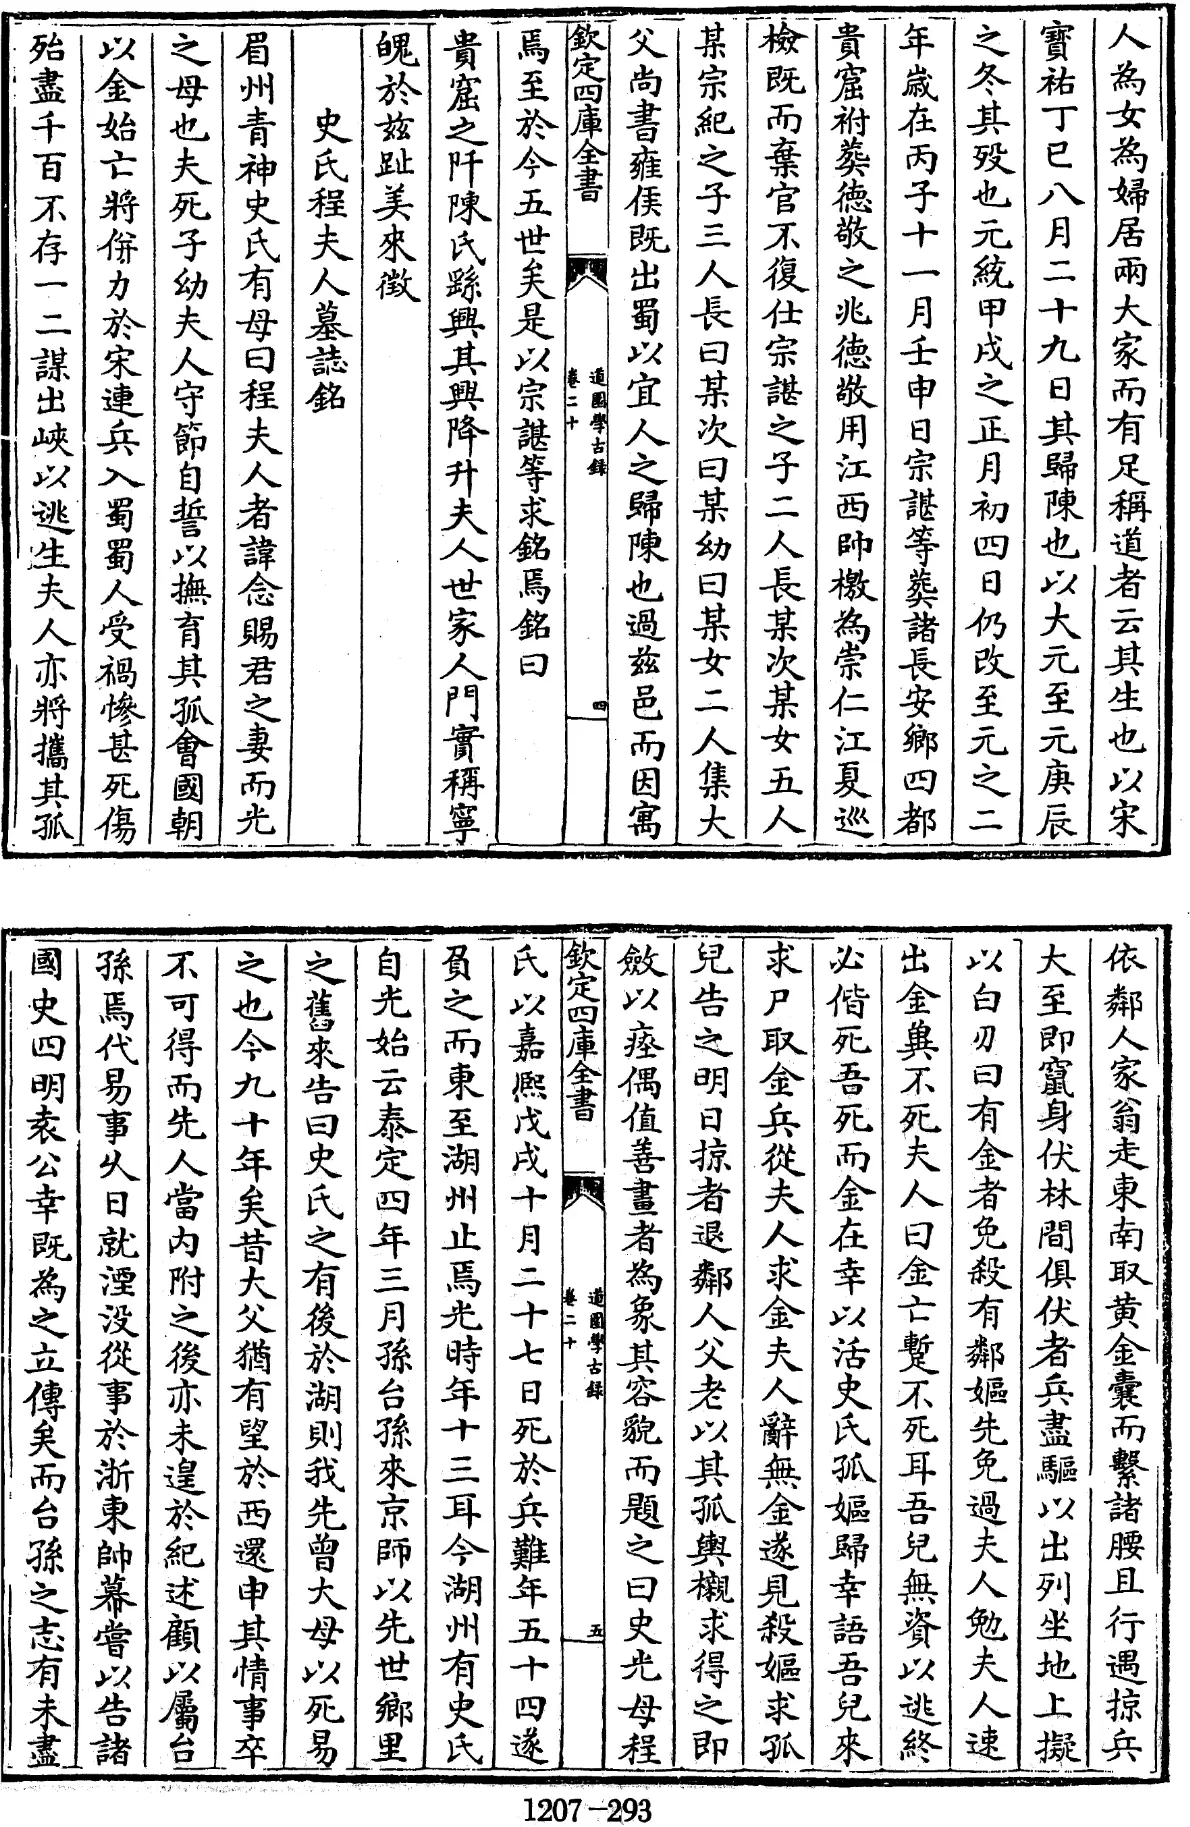 人為女為婦居兩大家而有足稱道者云其生也以宋
寳祐丁巳八月二十九日其歸陳也以大元至元庚辰
之冬其殁也元統甲戌之正月初四日仍改至元之二
年歲在丙子十一月壬申日宗諶等葬諸長安鄉四都
貴窟祔葬徳敬之兆徳敬用江西帥檄為崇仁江夏巡
檢既而棄官不復仕宗諶之子二人長某次某女五人
某宗紀之子三人長曰某次曰某幼曰某女二人集大
父尚書雍侯既出蜀以宜人之歸陳也過兹邑而因寓
欽定四庫全書
道園學古録
卷二十
四
焉至於今五世矣是以宗諶等求銘焉銘曰
貴窟之阡陳氏繇興其興降升夫人世家人門實稱寧
魄於兹趾美來徴
史氏程夫人墓誌銘
眉州青神史氏有母曰程夫人者諱念賜君之妻而光
之母也夫死子幼夫人守節自誓以撫育其孤會國朝
以金始亡將併力於宋連兵入蜀蜀人受禍慘甚死傷
殆盡千百不存一二謀出峽以逃生夫人亦將攜其孤
依鄰人家翁走東南取黄金囊而繫諸腰且行遇掠兵
大至即竄身伏林間俱伏者兵盡驅以出列坐地上擬
以白刃曰有金者免殺有鄰嫗先免過夫人勉夫人速
出金兾不死夫人曰金亡蹔不死耳吾兒無資以逃終
必偕死吾死而金在幸以活史氏孤嫗歸幸語吾兒來
求尸取金兵從夫人求金夫人辭無金遂見殺嫗求孤
兒告之明日掠者退鄰人父老以其孤輿櫬求得之即
斂以瘞偶值善畫者為象其容貌而題之曰史光母程
欽定四庫全書
道園學古録
卷二十
五
氏以嘉熙戊戌十月二十七日死於兵難年五十四遂
負之而東至湖州止焉光時年十三耳今湖州有史氏
自光始云泰定四年三月孫台孫來京師以先世鄉里
之舊來告曰史氏之有後於湖則我先曾大母以死易
之也今九十年矣昔大父猶有望於西還申其情事卒
不可得而先人當内附之後亦未遑於紀述顧以屬台
孫焉代易事乆日就湮没從事於浙東帥幕嘗以告諸
國史四明袁公幸既為之立傳矣而台孫之志有未盡
1207-293